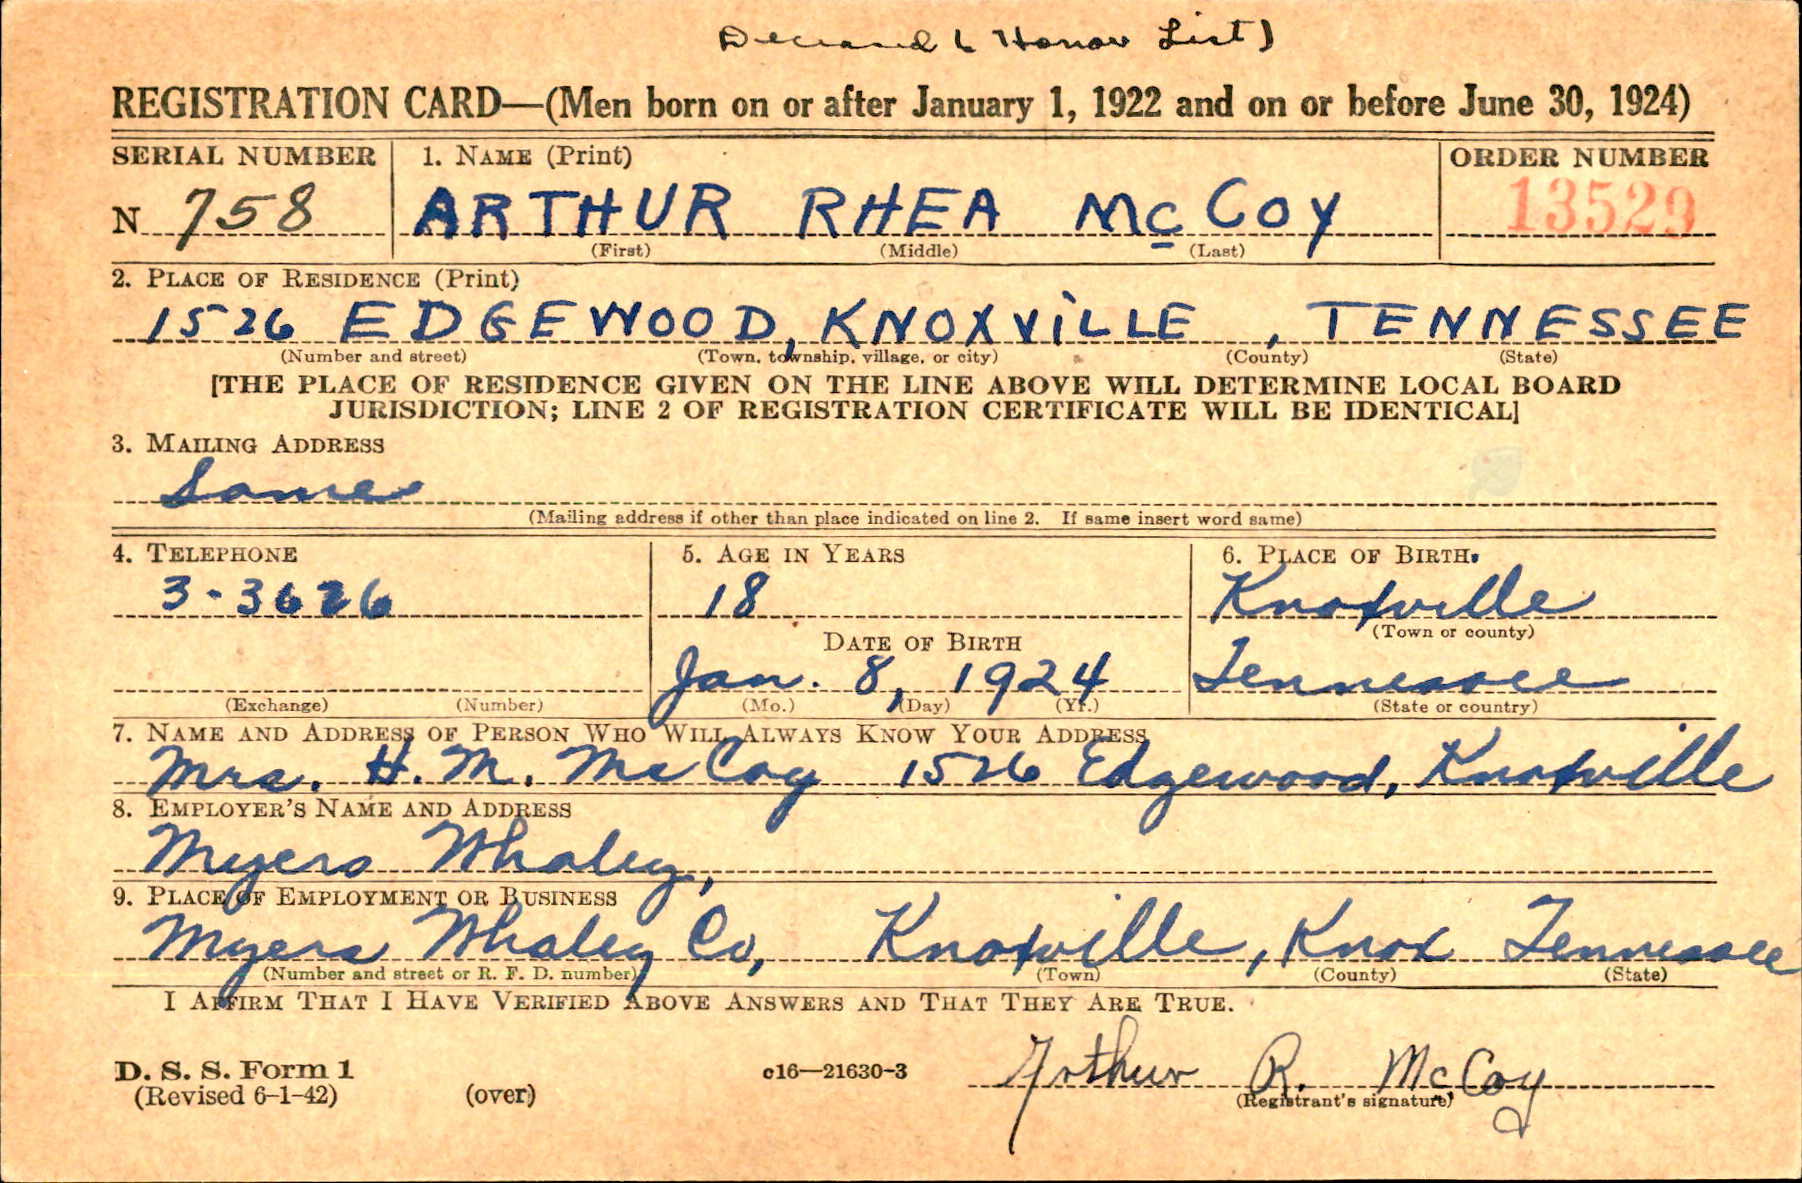 Deceased ( Honor List)
REGISTRATION CARD—(Men born on or after January 1, 1922 and on or before June 30, 1924)
SERIAL NUMBER 1. NAME (Print) ORDER NUMBER
N 758 ARTHUR RHEA McCOY 13529
(First) (Middle) (Last)
2. PLACE OF RESIDENCE (Print)
1526 EDGEWOOD, KNOXVILLE , TENNESSEE
(Number and street) (Town, township, village, or city) (County) (State)
[THE PLACE OF RESIDENCE GIVEN ON THE LINE ABOVE WILL DETERMINE LOCAL BOARD
JURISDICTION; LINE 2 OF REGISTRATION CERTIFICATE WILL BE IDENTICAL]
3. MAILING ADDRESS
Same
(Mailing address if other than place indicated on line 2. If same insert word same)
4. TELEPHONE 5. AGE IN YEARS 6. PLACE OF BIRTH
3-3626 18 Knoxville
(Town or county)
DATE OF BIRTH
Jan. 8, 1924 Tennessee
(Exchange) (Number) (Mo.) (Day) (Yr.) (State or country)
7. NAME AND ADDRESS OF PERSON WHO WILL ALWAYS KNOW YOUR ADDRESS
Mrs. H. M. McCoy 1526 Edgewood, Knoxville
8. EMPLOYER'S NAME AND ADDRESS
Myers Whaley,
9. PLACE OF EMPLOYMENT OR BUSINESS
Myers Whaley Co, Knoxville, Knox Tennessee
(Number and street or R. F. D. number) (Town) (County) (State)
I AFFIRM THAT I HAVE VERIFIED ABOVE ANSWERS AND THAT THEY ARE TRUE.
D. S. S. Form 1 c16—21630-3 Arthur R. McCoy
(Revised 6-1-42) (over) (Registrant's signature)